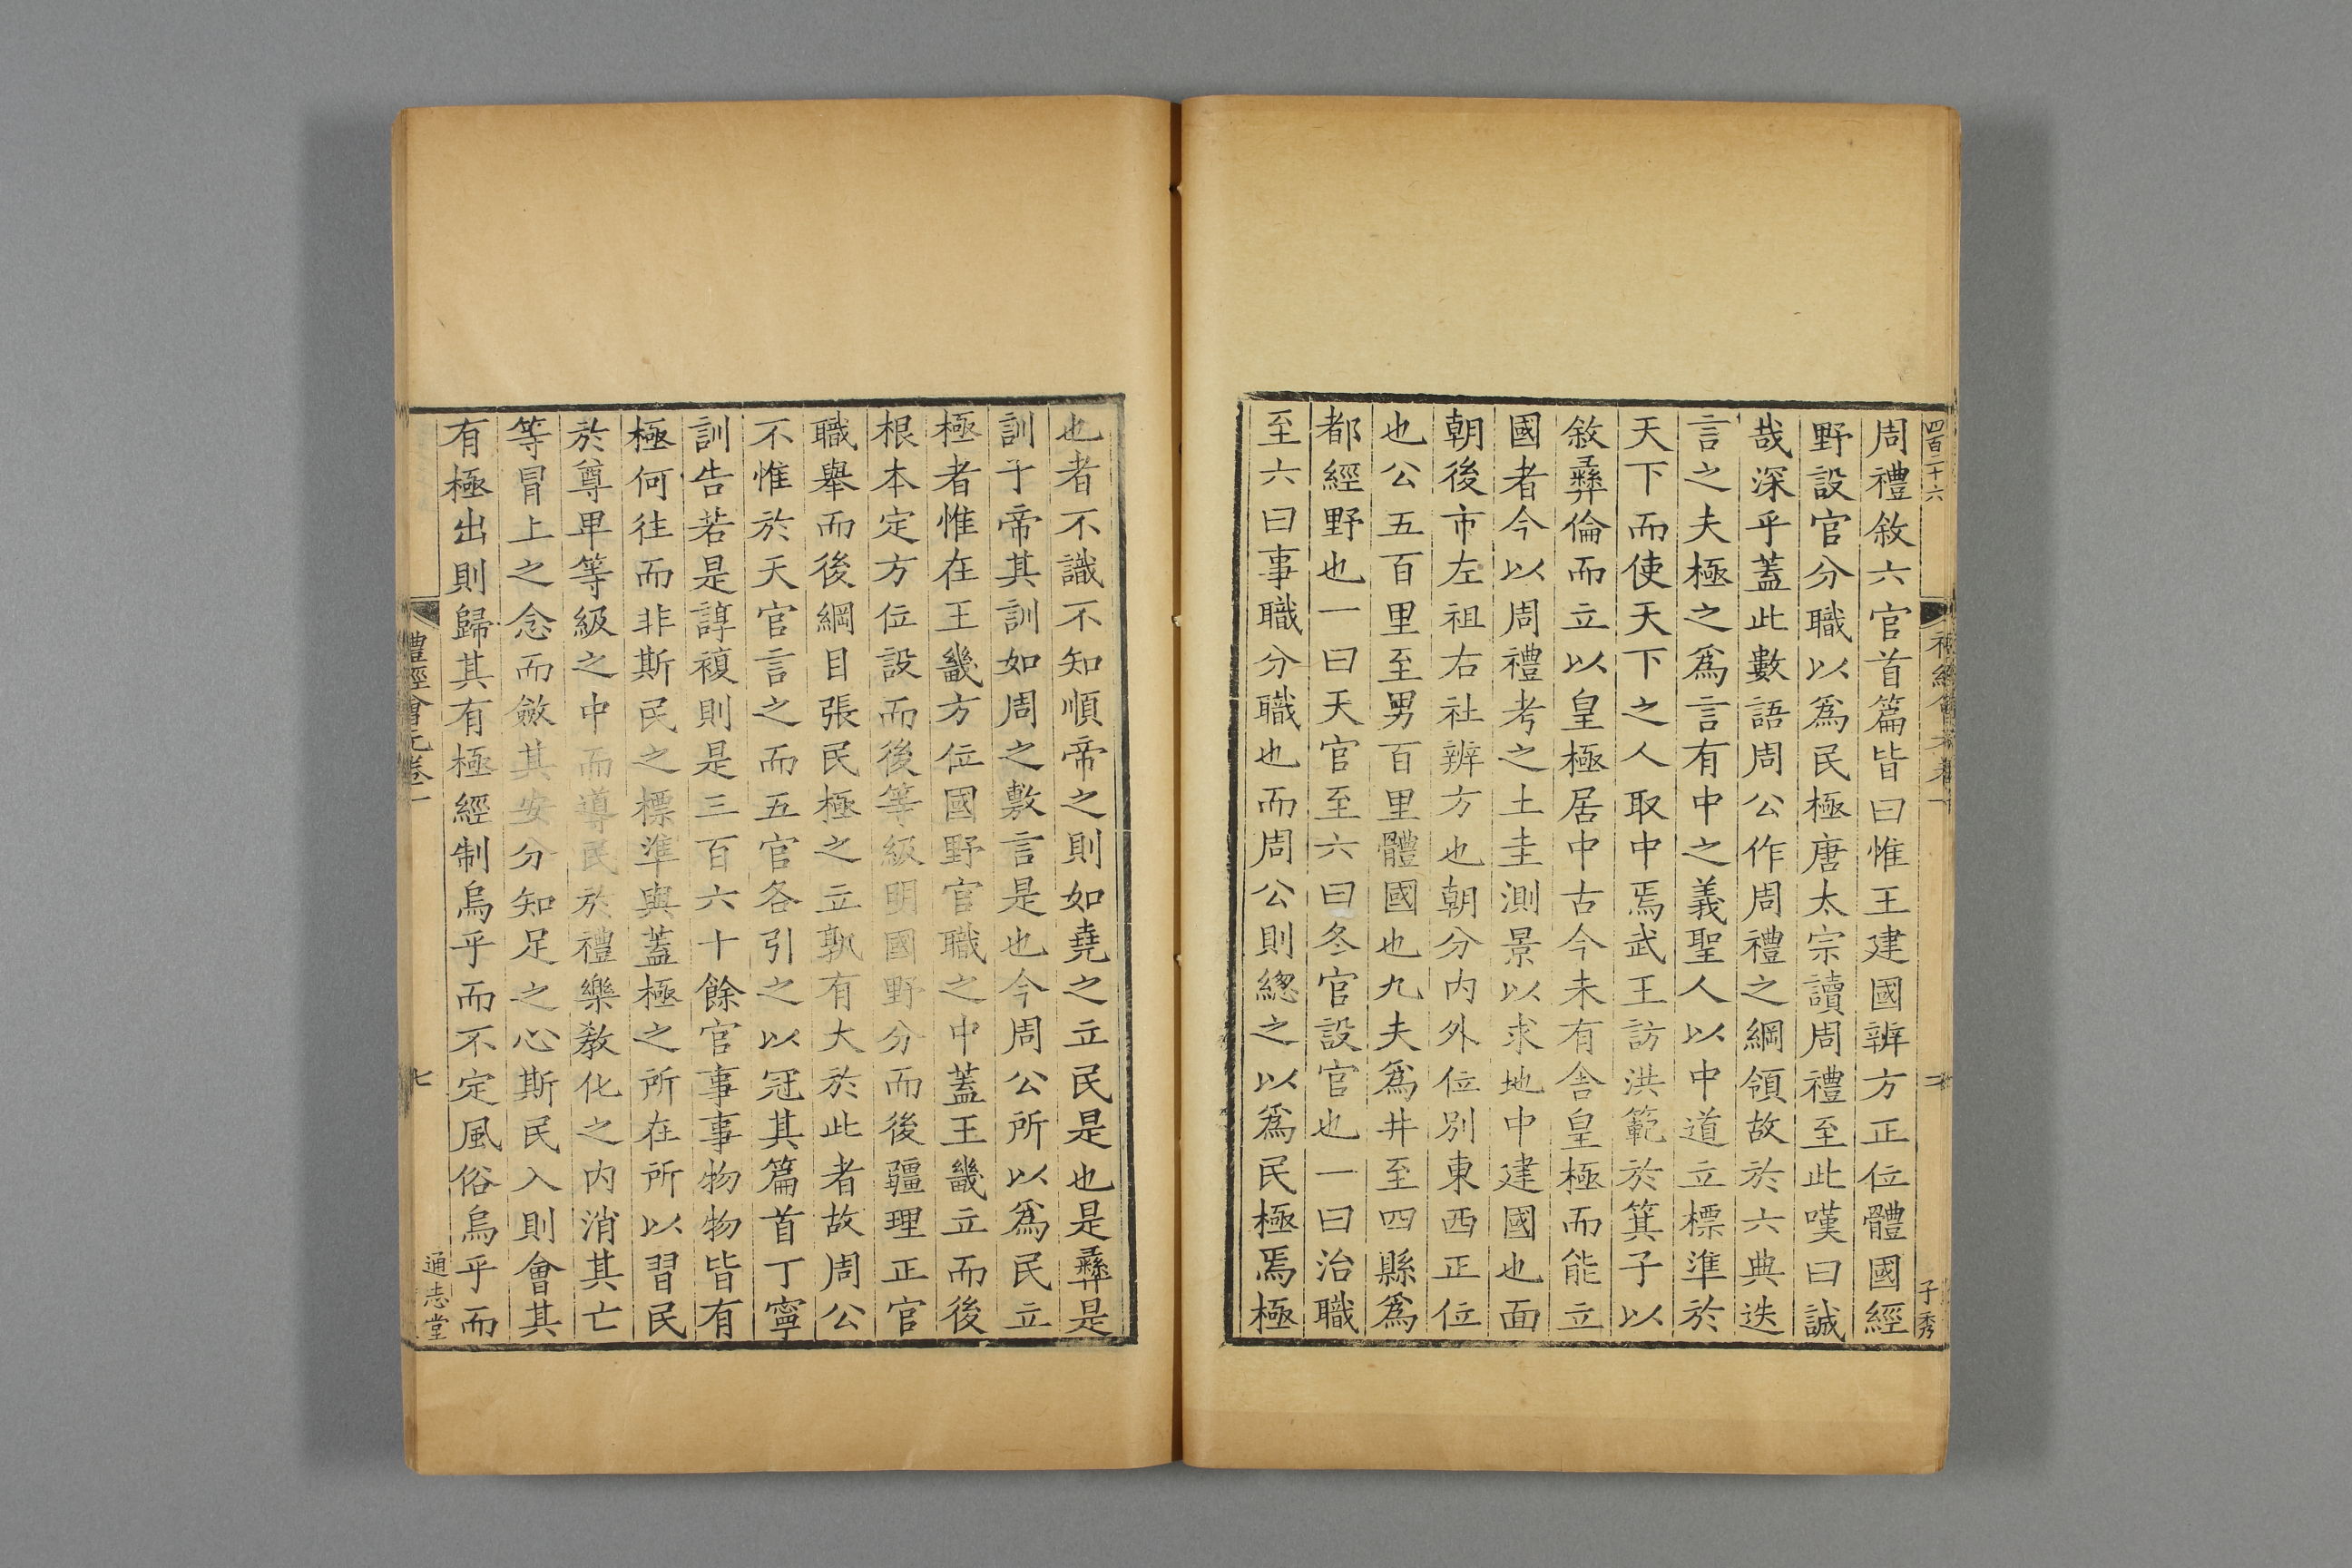 四百二十六
子秀
周禮敘六官首篇皆曰惟王建國辨方正位體國經
野設官分職以爲民極唐太宗讀周禮至此嘆曰誠
哉深乎蓋此數語周公作周禮之綱領故於六典迭
言之夫極之爲言有中之義聖人以中道立標準於
天下而使天下之人取中焉武王訪洪範於箕子以
敘彝倫而立以皇極居中古今未有舍皇極而能立
國者今以周禮考之土圭測景以求地中建國也面
朝後市左祖右社辨方也朝分内外位別東西正位
也公五百里至男百里體國也九夫爲井至四縣爲
都經野也一曰天官至六曰冬官設官也一曰治職
至六曰事職分職也而周公則總之以爲民極焉極
也者不識不知順帝之則如堯之立民是也是彝是
訓于帝其訓如周之敷言是也今周公所以爲民立
極者惟在王畿方位國野官職之中蓋王畿立而後
根本定方位設而後等級明國野分而後疆理正官
職舉而後綱目張民極之立孰有大於此者故周公
不惟於天官言之而五官各引之以冠其篇首丁寧
訓告若是諄複則是三百六十餘官事事物物皆有
極何往而非斯民之標準與蓋極之所在所以習民
於尊卑等級之中而導民於禮樂敎化之内消其亡
等冒上之念而斂其安分知足之心斯民入則會其
有極出則歸其有極經制烏乎而不定風俗烏乎而
禮經會元卷一
七
通志堂